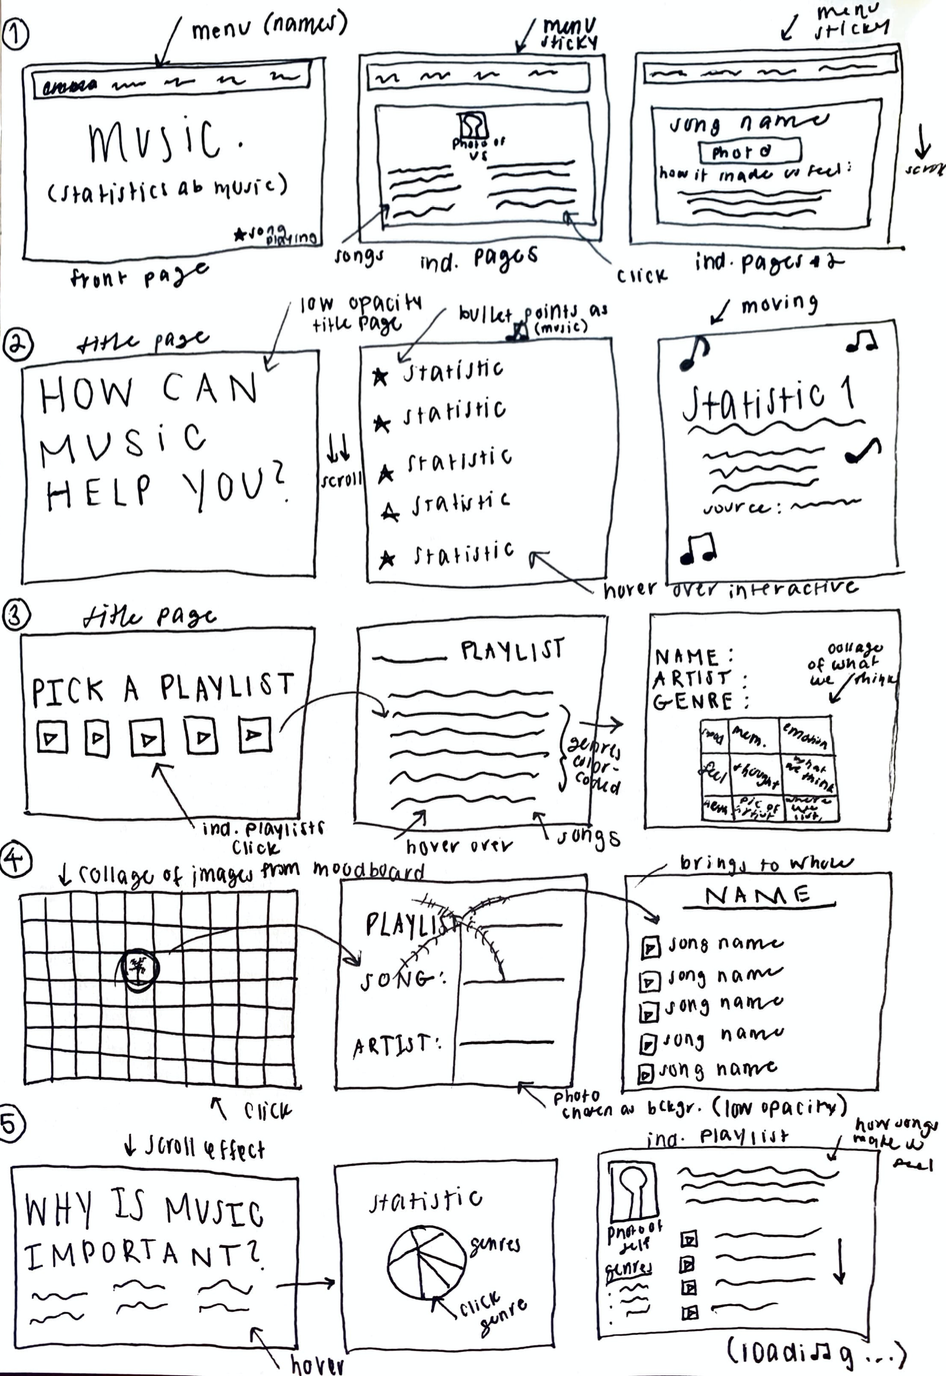 1
menu (names)
MUSIC.
(statistics ab music)
song
playing
front page
menu
sticky
photo of
us
songs
ind. pages
click
menu
sticky
song name
photo
how it made us feel:
scroll
ind. pages #2
2
title page
low opacity
title page
HOW CAN
MUSIC
HELP YOU?
scroll
bullet points as
(music)
statistic
statistic
statistic
statistic
statistic
hover over interactive
moving
statistic 1
source:
3
title page
PICK A PLAYLIST
ind. playlists
click
PLAYLIST
genres
color-
coded
hover over
songs
NAME:
ARTIST:
GENRE:
collage
of what
we think
mem.
emotion
feel
thought
what
we think
pic of
artist
where
we
4
collage of images from moodboard
click
PLAYLIST
SONG:
ARTIST:
photo
chosen as bckgr. (low opacity)
brings to whole
NAME
song name
song name
song name
song name
song name
5
scroll effect
WHY IS MUSIC
IMPORTANT?
hover
statistic
genres
click
genre
ind. playlist
how songs
made us
feel
photo of
self
genres
(loading ...)